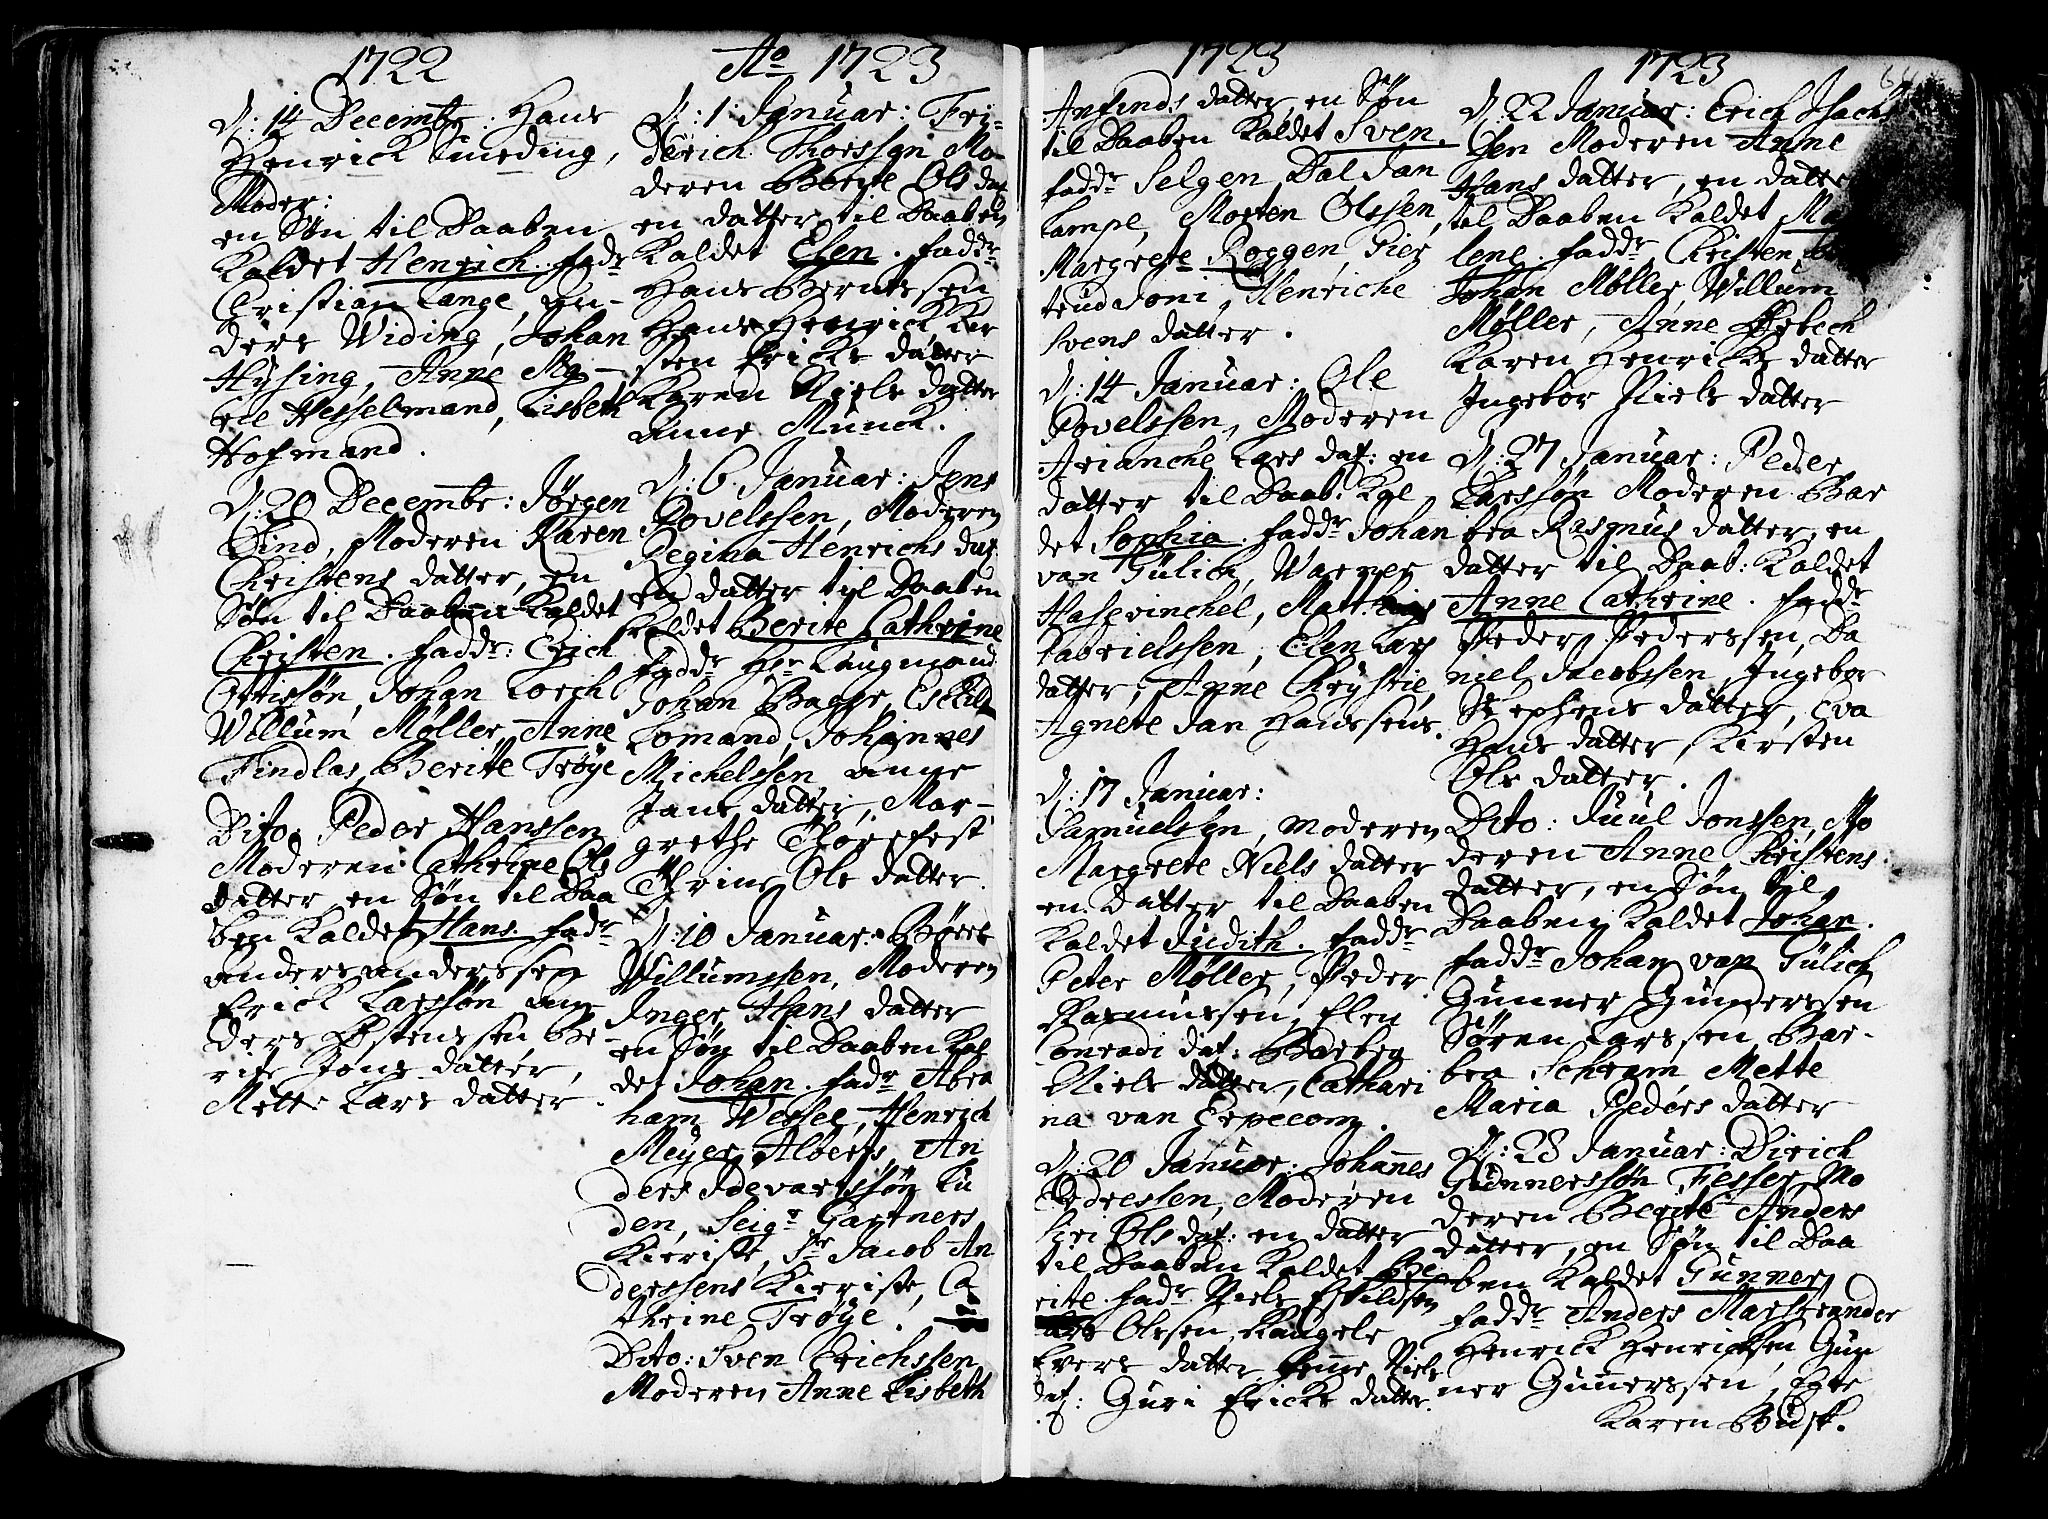 1722
D: 14 Decembr: Hans
Henrick Smeding,
Moder:
en Søn til Daaben
Kaldet Henrich. fadr
Christian Lange, An-
ders Widing, Johan
Hysing, Anne Ma-
ell Hesselmand, Lisbeth
Hofmand.
D: 20 Decembr: Jørgen
Dind, Moderen Karen
Christens datter, en
Søn til Daaben Kaldet
Christen. faddr: Erich
Ottissøn, Johan Lorch
Willum Møller, Anne
Findlas, Berite Trøye
Dito. Peder Hanssen
Moderen Cathrine Ols
datter, en Søn til Daa
ben Kaldet Hans fadr
Anders Anderssen
Erick Larssøn An-
ders Østenssen Be-
rite Jons datter,
Mette Lars datter.
Ao 1723
D: 1 Januar: Fri-
derich Thorssen Mo-
deren Berite Ols dat
en datter til Daaben
Kaldet Elen. faddr
Hans Berntssen
Hans Henrick Kar
sten Ericks datter
Karen Niels datter
Anne Munck.
D: 6. Januar: Jens
Povelssen, Moderen
Regina Henrichs dat
en datter til Daaben
Kaldet Berite Cathrine
faddr Hr Laugmand
Johan Bagge, Eskild
Lomand, Johannes
Michelssen Anne
Jans datter, Mar-
grethe Thorefest
Thrine Ols datter.
D: 10 Januar: Børre
Willumssen, Moderen
Inger Hans datter
en Søn til Daaben Kal
det Johan. fadr Abra
ham Wessel, Henrich
Meyer Alberts, An
ders Idevartssøn Lu
den, Seigr Gartners
Kieriste, Sr Jacob An
derssens Kieriste, Ca
thrine Trøye.
Dito: Sven Erichssen
Moderen Anne Lisbeth
1723
Anfinds datter, en Søn
til Daaben Kaldet Sven.
faddr Selgen Dal Jan
Lampe, Morten Olssen,
Margrete Roggen, Gier
trud Joni, Henriche
Svens datter.
D: 14 Januar: Ole
Povelssen, Moderen
Arianche Lars dat: en
datter til Daab: Kal
det Sophia. faddr Johan
van Gülich, Warner
Haservinchel, Matthias
Gabrielssen, Elen Lars
datter, Anne Chrystie,
Agnete Jan Hanssens.
D: 17 Januar:
Samuelsen, Moderen
Margrete Niels datter
en Datter til Daaben
Kaldet Judith. faddr
Peter Møller, Peder
Rasmussen, Elen
Conradi dat: Barbra
Niels datter, Cathari
na van Erpecom.
D: 20 Januar: Johannes
Andressen, Moderen
Siri Ols dat: en datter
til Daaben Kaldet Be
rite. fadr Niels Eskildsen
Lars Olssen, Raugele
Evers datter Anne Niels
dat: Guri Ericks datter.
1723
D: 22 Januar: Erich Isach
sen Moderen Anne
Hans datter, en datter
til Daaben Kaldet
lene. faddr Christen
Johan Møller, Willum
Møller, Anne Ørbech
Karen Henricks datter
Ingebor Niels datter
D: 27 Januar: Peder
Larssøn Moderen Bar
bra Rasmus datter, en
datter til Daab: Kaldet
Anne Cathrine. faddr
Peder Pederssen, Da
niel Jacobssen, Ingebor
Stephens datter, Eva
Hans datter, Kirsten
Ols datter.
Dito: Juul Jonssen, Mo
deren Anne Christens
datter, en Søn til
Daaben Kaldet Johan.
faddr Johan van Gülich
Gunner Gunderssen
Søren Larssen, Bar-
bra Schram, Mette
Maria Peders datter
D: 28 Januar: Dirich
Gunnerssøn Fesser, Mo
deren Berite Anders
datter, en Søn til Daa
ben Kaldet Gunner
faddr Anders Marstrander
Henrick Henrichsen Gun
ner Gunnerssen, Egte
Karen Budst.